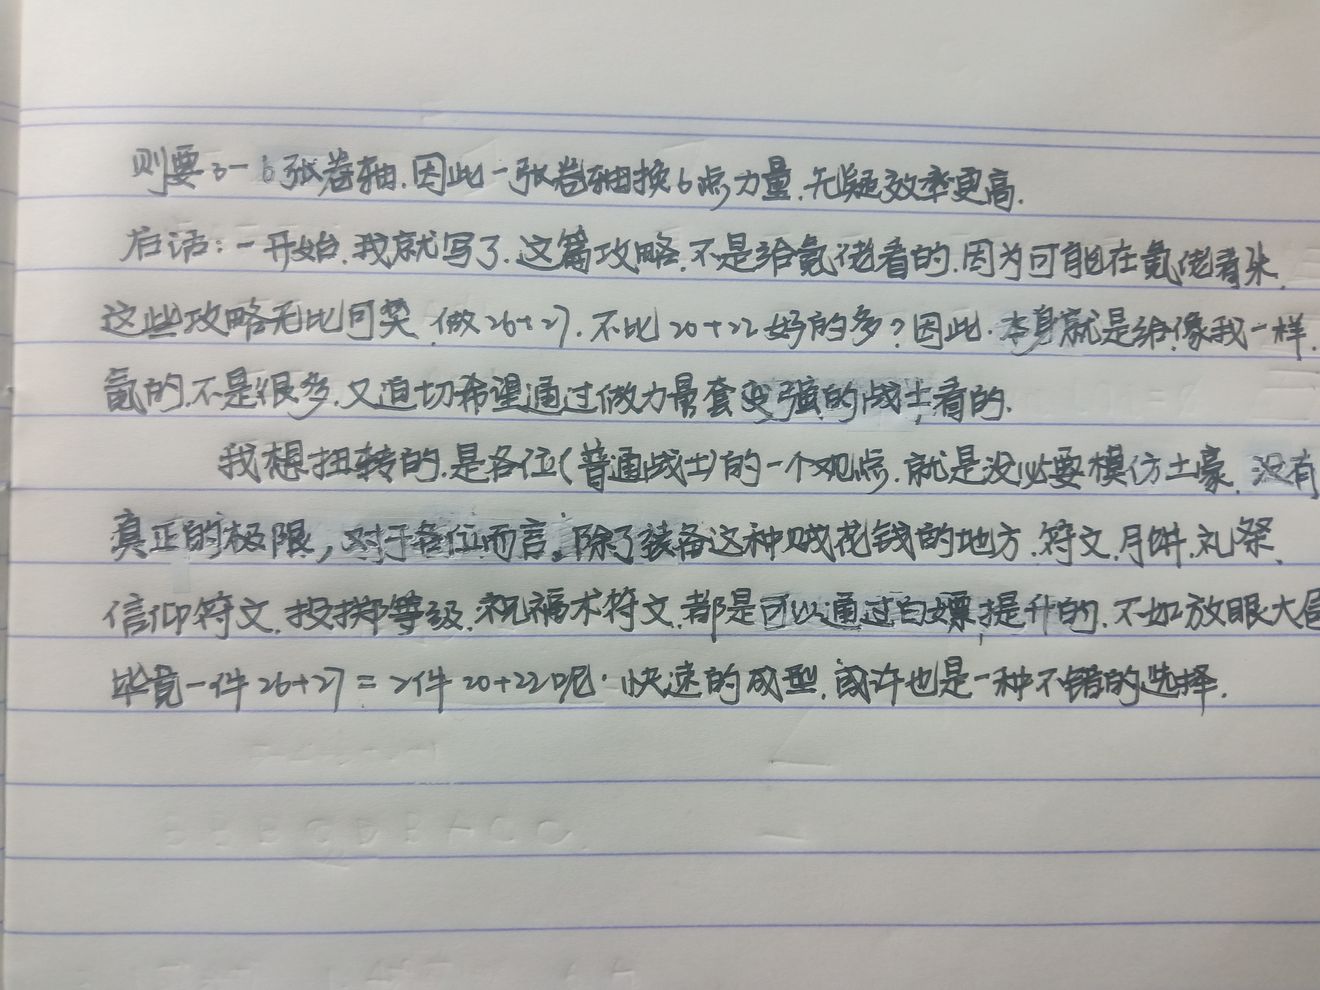 则要3-6张卷轴.因此一张卷轴换6点力量.无疑效率更高.
后话:一开始.我就写了.这篇攻略.不是给氪佬看的.因为可能在氪佬看来.
这些攻略无比可笑.做26+27.不比20+22好的多?因此.本身就是给像我一样.
氪的.不是很多.又迫切希望通过做力量套变强的战士看的.
我想扭转的.是各位(普通战士)的一个观点.就是没必要模仿土豪.没有
真正的极限,对于各位而言。除了装备这种贼花钱的地方.符文.月饼.礼祭.
信仰符文.投掷等级.祝福术符文.都是可以通过白嫖提升的.不如放眼大局
毕竟一件26+27=2件20+22呢.快速的成型.或许也是一种不错的选择.